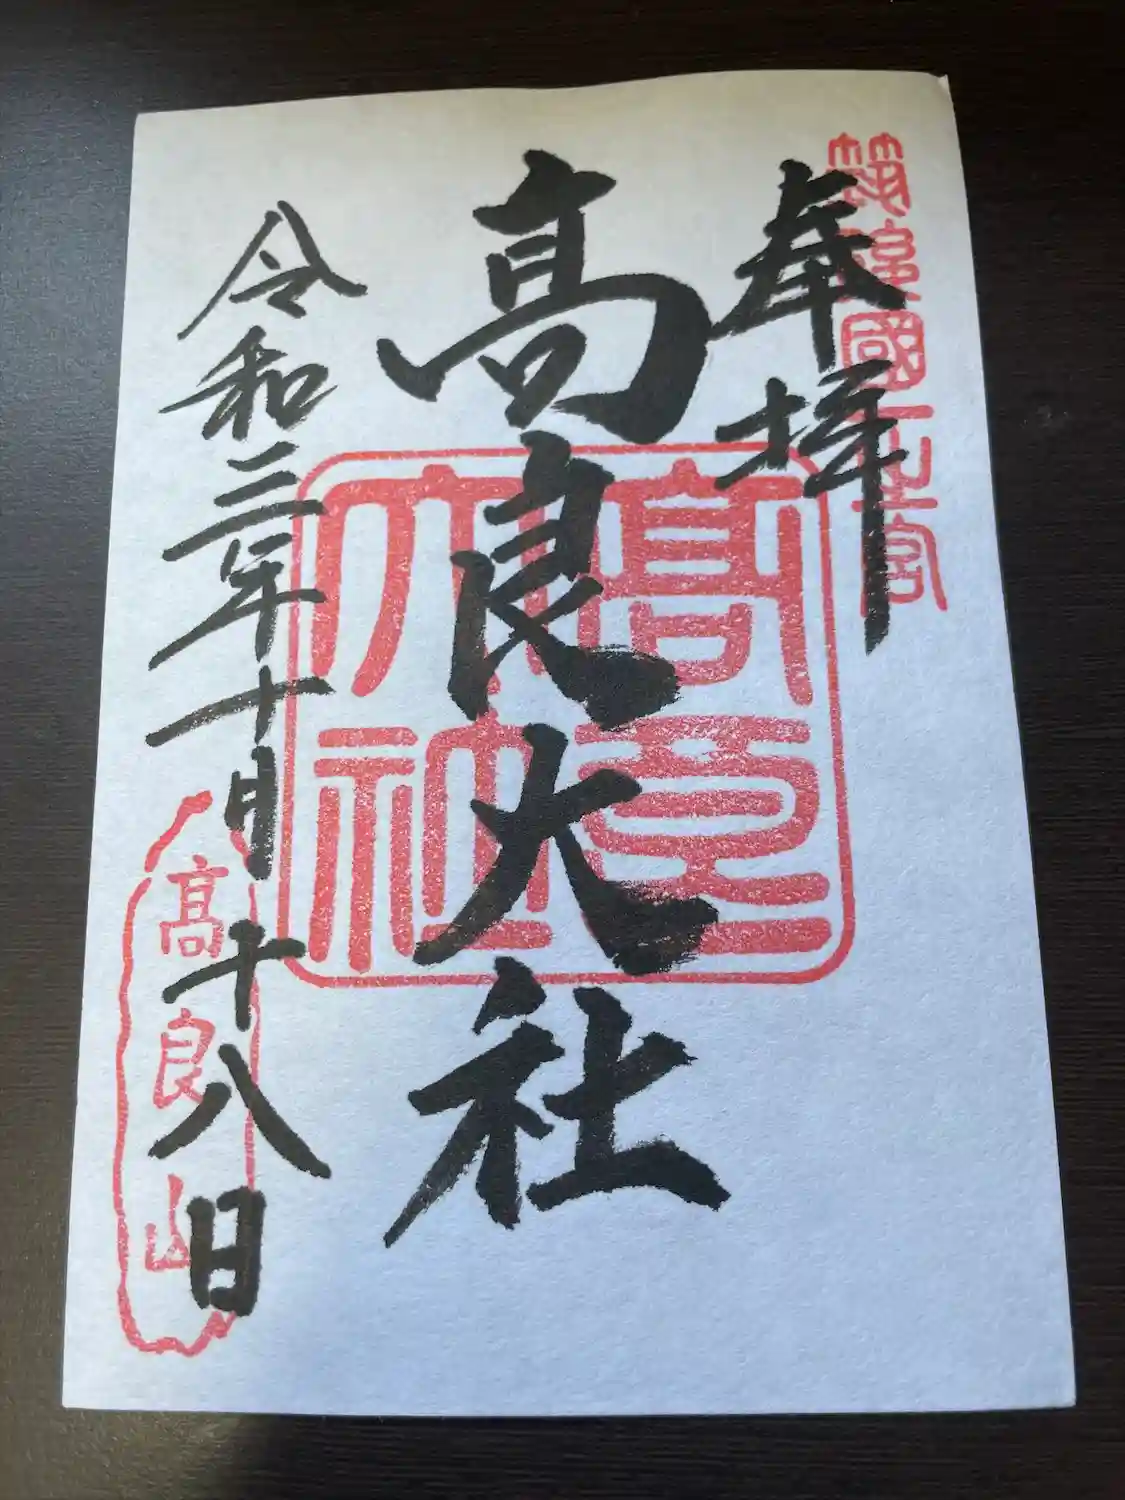 筑後國一之宮
奉拝
高良大社
高良大社
令和二年十月十八日
高良山